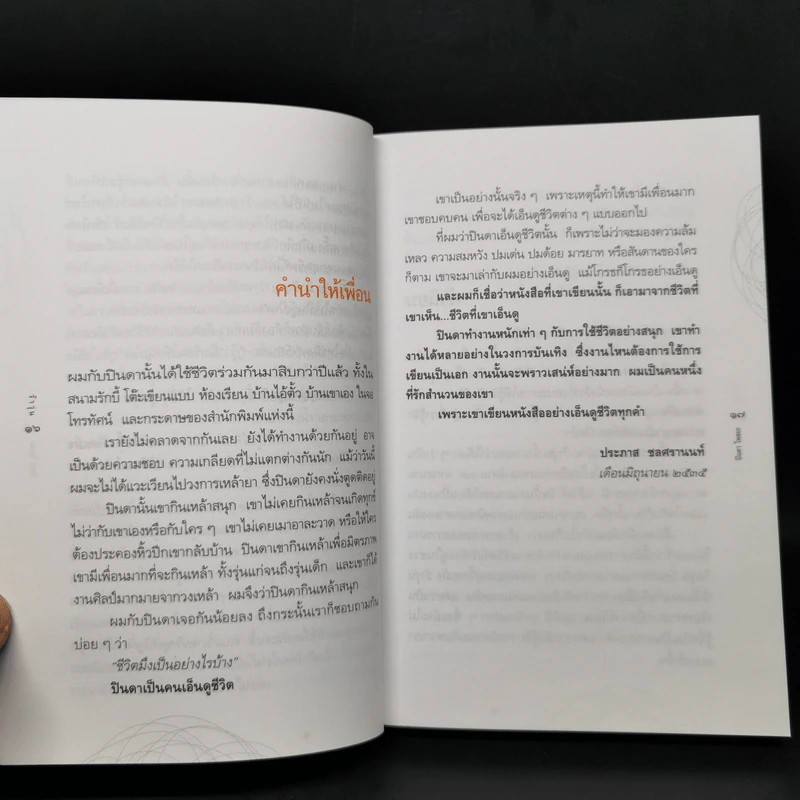 คำนำให้เพื่อน
ผมกับปินดานั้นได้ใช้ชีวิตร่วมกันมาสิบกว่าปีแล้ว ทั้งใน
สนามรักบี้ โต๊ะเขียนแบบ ห้องเรียน บ้านไอ้ตั้ว บ้านเขาเอง ในจอ
โทรทัศน์ และกระดาษของสำนักพิมพ์แห่งนี้
เรายังไม่คลาดจากกันเลย ยังได้ทำงานด้วยกันอยู่ อาจ
เป็นด้วยความชอบ ความเกลียดที่ไม่แตกต่างกันนัก แม้ว่าวันนี้
ผมจะไม่ได้แวะเวียนไปวงการเหล้ายา ซึ่งปินดายังคงนั่งตูดติดอยู่
ปินดานั้นเขากินเหล้าสนุก เขาไม่เคยกินเหล้าจนเกิดทุกข์
ไม่ว่ากับเขาเองหรือกับใคร ๆ เขาไม่เคยเมาอาละวาด หรือให้ใคร
ต้องประคองหิ้วปีกเขากลับบ้าน ปินดาเขากินเหล้าเพื่อมิตรภาพ
เขามีเพื่อนมากที่จะกินเหล้า ทั้งรุ่นแก่จนถึงรุ่นเด็ก และเขาก็ได้
งานศิลป์มากมายจากวงเหล้า ผมจึงว่าปินดากินเหล้าสนุก
ผมกับปินดาเจอกันน้อยลง ถึงกระนั้นเราก็ชอบถามกัน
บ่อย ๆ ว่า
“ชีวิตมึงเป็นอย่างไรบ้าง”
ปินดาเป็นคนเอ็นดูชีวิต
เขาเป็นอย่างนั้นจริง ๆ เพราะเหตุนี้ทำให้เขามีเพื่อนมาก
เขาชอบคบคน เพื่อจะได้เอ็นดูชีวิตต่าง ๆ แบบออกไป
ที่ผมว่าปินดาเอ็นดูชีวิตนั้น ก็เพราะไม่ว่าจะมองความล้ม
เหลว ความสมหวัง ปมเด่น ปมด้อย มารยาท หรือสันดานของใคร
ก็ตาม เขาจะมาเล่ากับผมอย่างเอ็นดู แม้โกรธก็โกรธอย่างเอ็นดู
และผมก็เชื่อว่าหนังสือที่เขาเขียนนั้น ก็เอามาจากชีวิตที่
เขาเห็น...ชีวิตที่เขาเอ็นดู
ปินดาทำงานหนักเท่า ๆ กับการใช้ชีวิตอย่างสนุก เขาทำ
งานได้หลายอย่างในวงการบันเทิง ซึ่งงานไหนต้องการใช้การ
เขียนเป็นเอก งานนั้นจะพราวเสน่ห์อย่างมาก ผมเป็นคนหนึ่ง
ที่รักสำนวนของเขา
เพราะเขาเขียนหนังสืออย่างเอ็นดูชีวิตทุกคำ
ประภาส ชลศรานนท์
เดือนมิถุนายน ๒๕๓๕
๑๗
ปินดา โพสยะ